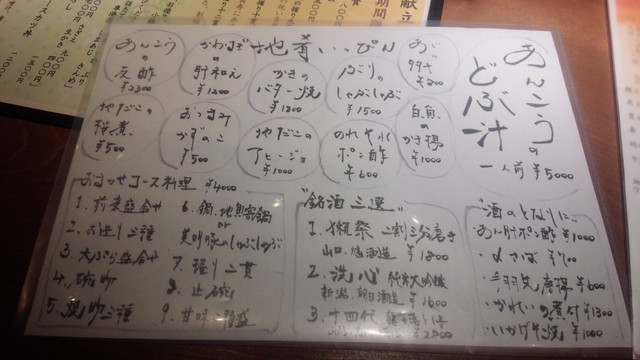 あんこうの
どぶ汁
一人前 ¥5000
地肴いっぴん
あんこう
の
友酢
¥2300
かわはぎ
の
肝和え
¥1200
かきの
バター焼
¥1300
ぶりの
しゃぶしゃぶ
¥1500
あじ
タタキ
地だこの
¥500
おつまみ
かずのこ
¥500
地だこの
アヒージョ
¥1000
のれそれ
ポン酢
¥600
白魚
の
かき揚
¥1000
おまかせコース料理 ¥4000
1. 前菜盛合せ
2. お造り三種
3. 天ぷら盛合せ
4. 碗
5. 焼物三種
6. 鍋、地魚寄鍋
or
美明豚のしゃぶしゃぶ
7. 握り二貫
8. 止碗
9. 甘味二種盛
"銘酒三選"
1. 獺祭 二割三分磨き
山口、旭酒造 ¥1800
2. 洗心 純米大吟醸
新潟、朝日酒造 ¥1600
3. 十四代
"酒のとなりに"
・あん肝ポン酢 ¥1000
・〆さば ¥700
・手羽先唐揚 ¥600
・かれいの煮付 ¥1300
・いかげそ焼 ¥1000
献立
期間